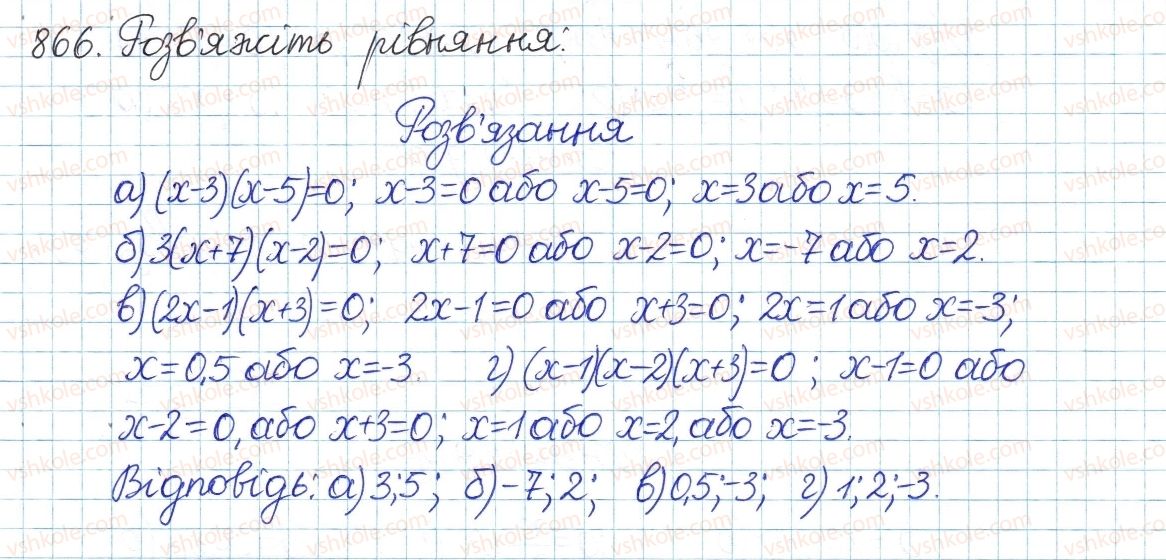 866. Розв'яжіть рівняння:
Розв'язання
а) (x-3)(x-5)=0; x-3=0 або x-5=0; x=3 або x=5.
б) 3(x+7)(x-2)=0; x+7=0 або x-2=0; x=-7 або x=2.
в) (2x-1)(x+3)=0; 2x-1=0 або x+3=0; 2x=1 або x=-3;
x=0,5 або x=-3. г) (x-1)(x-2)(x+3)=0; x-1=0 або
x-2=0, або x+3=0; x=1 або x=2, або x=-3.
Відповідь: а) 3; 5; б) -7; 2; в) 0,5; -3; г) 1; 2; -3.